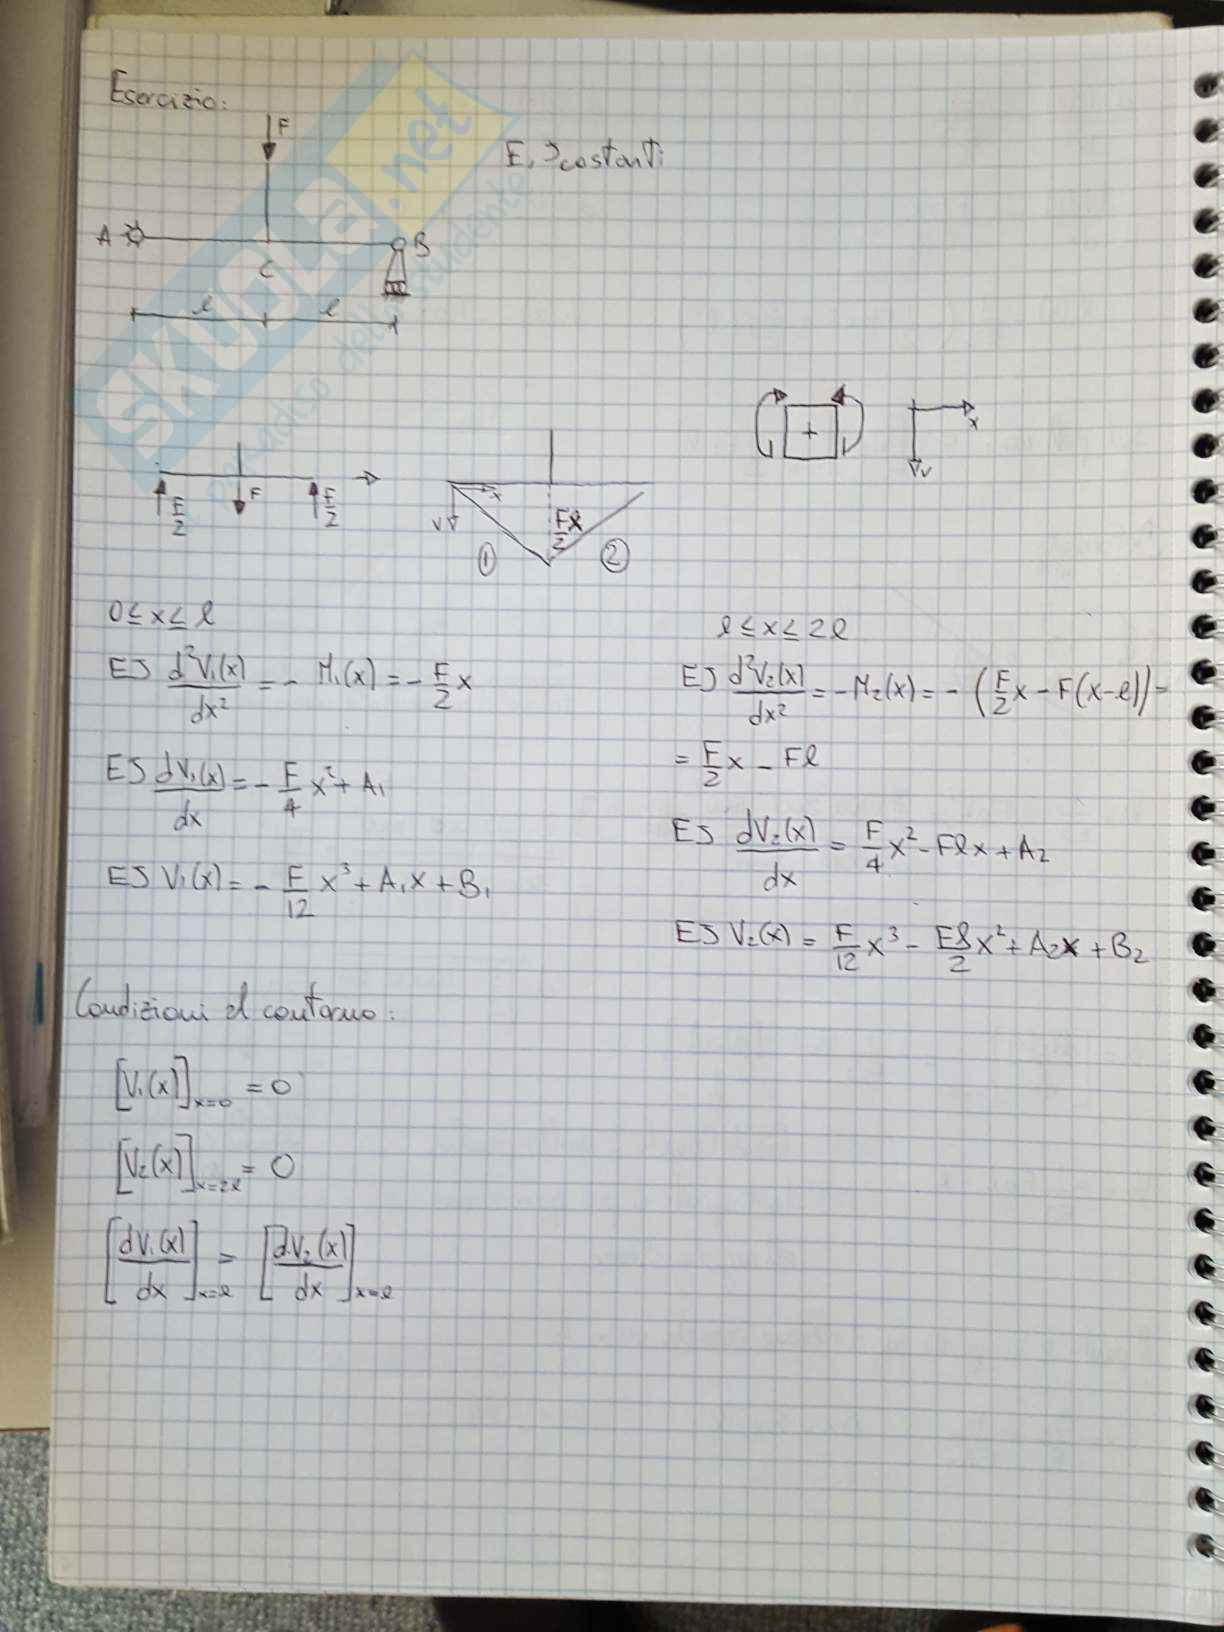 Esercizio:
F
E, J costanti
A
B
C
l l
SKUOLA.net
+
x
v
F/2 F F/2
x
v
Fl/2
1 2
0 ≤ x ≤ l
EJ d²V₁(x)/dx² = - M₁(x) = - F/2 x
EJ dV₁(x)/dx = - F/4 x² + A₁
EJ V₁(x) = - F/12 x³ + A₁x + B₁
l ≤ x ≤ 2l
EJ d²V₂(x)/dx² = -M₂(x) = - (F/2 x - F(x-l)) =
= F/2 x - Fl
EJ dV₂(x)/dx = F/4 x² - Flx + A₂
EJ V₂(x) = F/12 x³ - Fl/2 x² + A₂x + B₂
Condizioni al contorno:
[V₁(x)]x=0 = 0
[V₂(x)]x=2l = 0
[dV₁(x)/dx]x=l = [dV₂(x)/dx]x=l